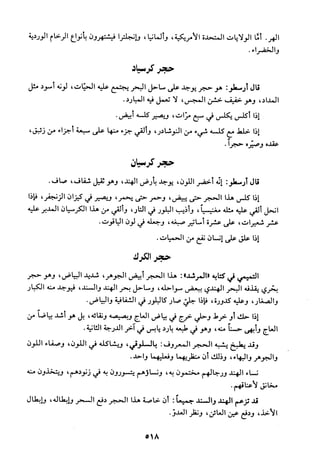 الهر. أمّا الولايات المتحدة الأمريكية، وألمانيا، وإنجلترا فيشتهرون بأنواع الرخام الوردية
والخضراء.
حجر كرسياد
قال أرسطو: هو حجر يوجد على ساحل البحر يجتمع عليه الحيّات، لونه أسود مثل
المداد، وهو خفيف خشن المجس، لا تعمل فيه المبارد.
إذا كُلّس يكلس في سبع مرّات، ويصير كلسه أبيض.
إذا خلط مع كلسه شيء من النوشادر، وألقي جزء منها على سبعة أجزاء من زئبق،
عقده وصيّره حجراً.
حجر كرسيان
قال أرسطو: إنّه أخضر اللون، يوجد بأرض الهند، وهو ثقيل شفاف، صاف.
إذا كلس هذا الحجر حتى يبيض، وحمر حتى يحمر، ويصير في كيزان الزنجفر، فإذا
انحل ألقي عليه مثله مغنيسياً، وأذيب البلور في النار، وألقي من هذا الكرسيان المدبر عليه
عشر شعيرات، على عشرة أساتير صبغه، وجعله في لون الياقوت.
إذا علق على إنسان نفع من الحميات.
حجر الكرك
التميمي في كتابه «المرشد»: هذا الحجر أبيض الجوهر، شديد البياض، وهو حجر
بحري يقذفه البحر الهندي ببعض سواحله، وساحل بحر الهند والسند، فيوجد منه الكبار
والصغار، وعليه كدورة، فإذا جلي صار كالبلور في الشفافية والبياض.
إذا حك أو خرط وجلي خرج في بياض العاج وبصيصه ونقائه، بل هو أشد بياضاً من
العاج وأبهى حسناً منه، وهو في طبعه بارد يابس في آخر الدرجة الثانية.
وقد يطبخ يشبه الحجر المعروف: بالسلوقي، ويشاكله في اللون، وصفاء اللون
والجوهر والبهاء، وذلك أن منظريهما وفعليهما واحد.
نساء الهند ورجالهم مختمون به، ونساؤهم يتسورون به في زنودهم، ويتخذون منه
مخانق لأعناقهم.
قد تزعم الهند والسند جميعاً: أن خاصة هذا الحجر دفع السحر وإبطاله، وإبطال
الأخذ، ودفع عين العائن، ونظر العدوّ.
٥١٨